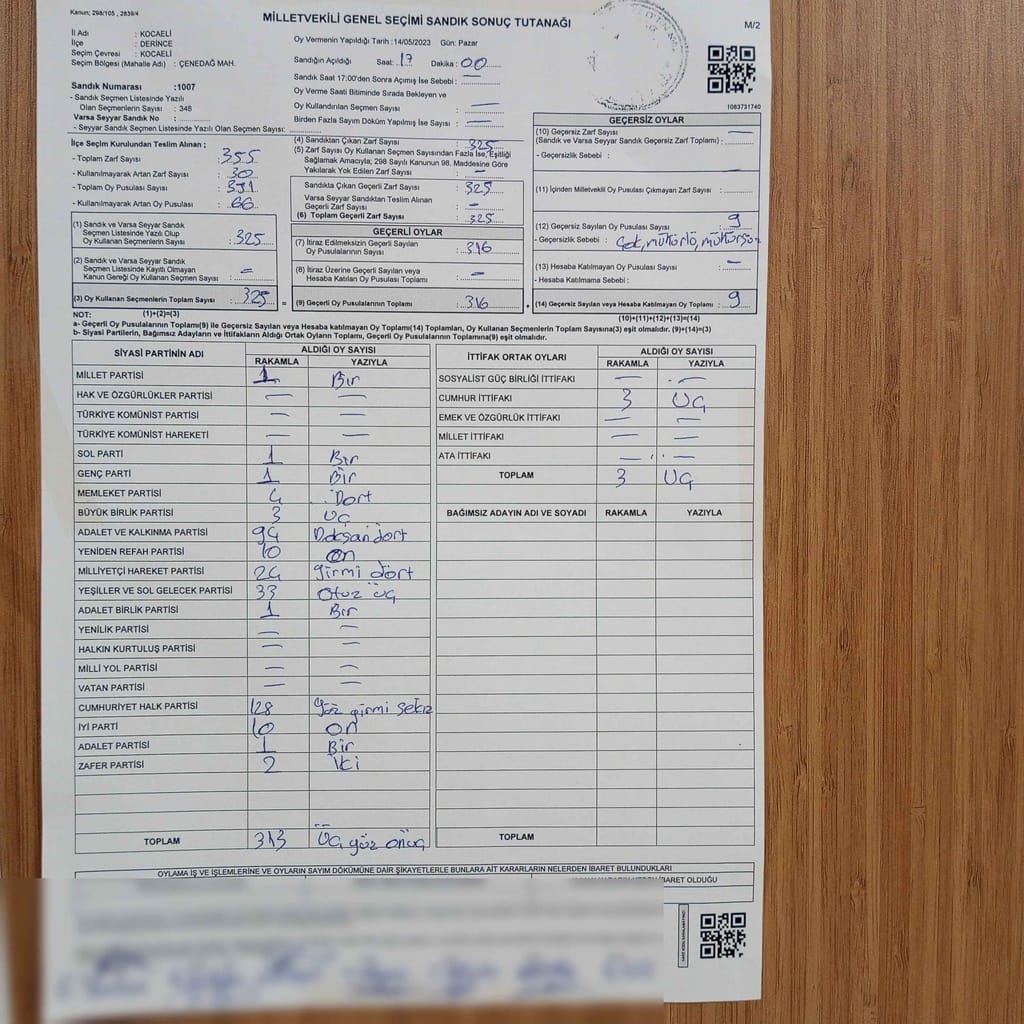 Kanun; 298/105 , 2839/4
MİLLETVEKİLİ GENEL SEÇİMİ SANDIK SONUÇ TUTANAĞI
M/2
İl Adı : KOCAELİ
İlçe : DERİNCE
Seçim Çevresi : KOCAELİ
Seçim Bölgesi (Mahalle Adı) : ÇENEDAĞ MAH.
Oy Vermenin Yapıldığı Tarih :14/05/2023 Gün: Pazar
Sandığın Açıldığı Saat: 17 Dakika: 00
Sandık Saat 17:00'den Sonra Açımış İse Sebebi : —
Oy Verme Saati Bitiminde Sırada Bekleyen ve
Oy Kullandırılan Seçmen Sayısı : —
Birden Fazla Sayım Döküm Yapılmış İse Sayısı : —
1083731740
Sandık Numarası :1007
- Sandık Seçmen Listesinde Yazılı
Olan Seçmenlerin Sayısı : 348
Varsa Seyyar Sandık No :
- Seyyar Sandık Seçmen Listesinde Yazılı Olan Seçmen Sayısı:
İlçe Seçim Kurulundan Teslim Alınan ;
- Toplam Zarf Sayısı : 355
- Kullanılmayarak Artan Zarf Sayısı : 30
- Toplam Oy Pusulası Sayısı :
- Kullanılmayarak Artan Oy Pusulası : 66
(1) Sandık ve Varsa Seyyar Sandık
Seçmen Listesinde Yazılı Olup
Oy Kullanan Seçmenlerin Sayısı : 325
(2) Sandık ve Varsa Seyyar Sandık
Seçmen Listesinde Kayıtlı Olmayan
Kanun Gereği Oy Kullanan Seçmen Sayısı : —
(3) Oy Kullanan Seçmenlerin Toplam Sayısı : 325 =
(4) Sandıktan Çıkan Zarf Sayısı : 325
(5) Zarf Sayısı Oy Kullanan Seçmen Sayısından Fazla İse, Eşitliği
Sağlamak Amacıyla; 298 Sayılı Kanunun 98. Maddesine Göre
Yakılarak Yok Edilen Zarf Sayısı : —
Sandıkta Çıkan Geçerli Zarf Sayısı : 325
Varsa Seyyar Sandıktan Teslim Alınan
Geçerli Zarf Sayısı : —
(6) Toplam Geçerli Zarf Sayısı : 325
GEÇERLİ OYLAR
(7) İtiraz Edilmeksizin Geçerli Sayılan
Oy Pusulalarının Sayısı : 316
(8) İtiraz Üzerine Geçerli Sayılan veya
Hesaba Katılan Oy Pusulası Toplamı : —
(9) Geçerli Oy Pusulalarının Toplamı : 316 +
GEÇERSİZ OYLAR
(10) Geçersiz Zarf Sayısı —
(Sandık ve Varsa Seyyar Sandık Geçersiz Zarf Toplamı) :
- Geçersizlik Sebebi :
(11) İçinden Milletvekili Oy Pusulası Çıkmayan Zarf Sayısı :
(12) Geçersiz Sayılan Oy Pusulası Sayısı : 9
- Geçersizlik Sebebi :
(13) Hesaba Katılmayan Oy Pusulası Sayısı : —
- Hesaba Katılmama Sebebi :
(14) Geçersiz Sayılan veya Hesaba Katılmayan Oy Toplamı : 9
NOT: (1)+(2)=(3) (10)+(11)+(12)+(13)=(14)
a- Geçerli Oy Pusulalarının Toplamı(9) ile Geçersiz Sayılan veya Hesaba katılmayan Oy Toplamı(14) Toplamları, Oy Kullanan Seçmenlerin Toplam Sayısına(3) eşit olmalıdır. (9)+(14)=(3)
b- Siyasi Partilerin, Bağımsız Adayların ve İttifakların Aldığı Ortak Oyların Toplamı, Geçerli Oy Pusulalarının Toplamına(9) eşit olmalıdır.
SİYASİ PARTİNİN ADI ALDIĞI OY SAYISI
RAKAMLA YAZIYLA
MİLLET PARTİSİ 1 Bir
HAK VE ÖZGÜRLÜKLER PARTİSİ — —
TÜRKİYE KOMÜNİST PARTİSİ — —
TÜRKİYE KOMÜNİST HAREKETİ — —
SOL PARTİ 1 Bir
GENÇ PARTİ 1 Bir
MEMLEKET PARTİSİ 4 Dört
BÜYÜK BİRLİK PARTİSİ 3 üç
ADALET VE KALKINMA PARTİSİ 94 Doksan dört
YENİDEN REFAH PARTİSİ 10 on
MİLLİYETÇİ HAREKET PARTİSİ 24 yirmi dört
YEŞİLLER VE SOL GELECEK PARTİSİ 33 Otuz üç
ADALET BİRLİK PARTİSİ 1 Bir
YENİLİK PARTİSİ — —
HALKIN KURTULUŞ PARTİSİ — —
MİLLİ YOL PARTİSİ — —
VATAN PARTİSİ — —
CUMHURİYET HALK PARTİSİ 128 yüz yirmi sekiz
İYİ PARTİ 10 on
ADALET PARTİSİ 1 Bir
ZAFER PARTİSİ 2 İki
TOPLAM 313 Üç yüz onüç
İTTİFAK ORTAK OYLARI ALDIĞI OY SAYISI
RAKAMLA YAZIYLA
SOSYALİST GÜÇ BİRLİĞİ İTTİFAKI — —
CUMHUR İTTİFAKI 3 Üç
EMEK VE ÖZGÜRLÜK İTTİFAKI — —
MİLLET İTTİFAKI — —
ATA İTTİFAKI — —
TOPLAM 3 Üç
BAĞIMSIZ ADAYIN ADI VE SOYADI RAKAMLA YAZIYLA
TOPLAM
OYLAMA İŞ VE İŞLEMLERİNE VE OYLARIN SAYIM DÖKÜMÜNE DAİR ŞİKAYETLERLE BUNLARA AİT KARARLARIN NELERDEN İBARET BULUNDUKLARI
İBARET OLDUĞU